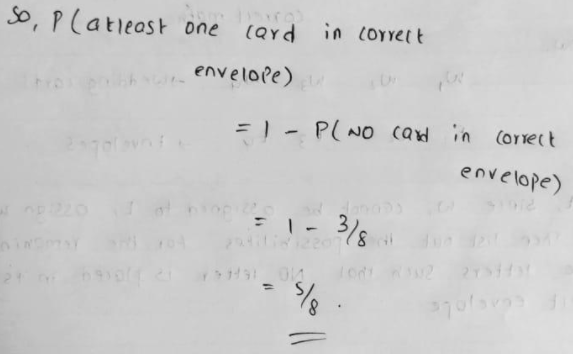 So, P(atleast one card in correct
envelope)
= 1 - P(NO card in correct
envelope)
= 1 - 3/8
= 5/8.